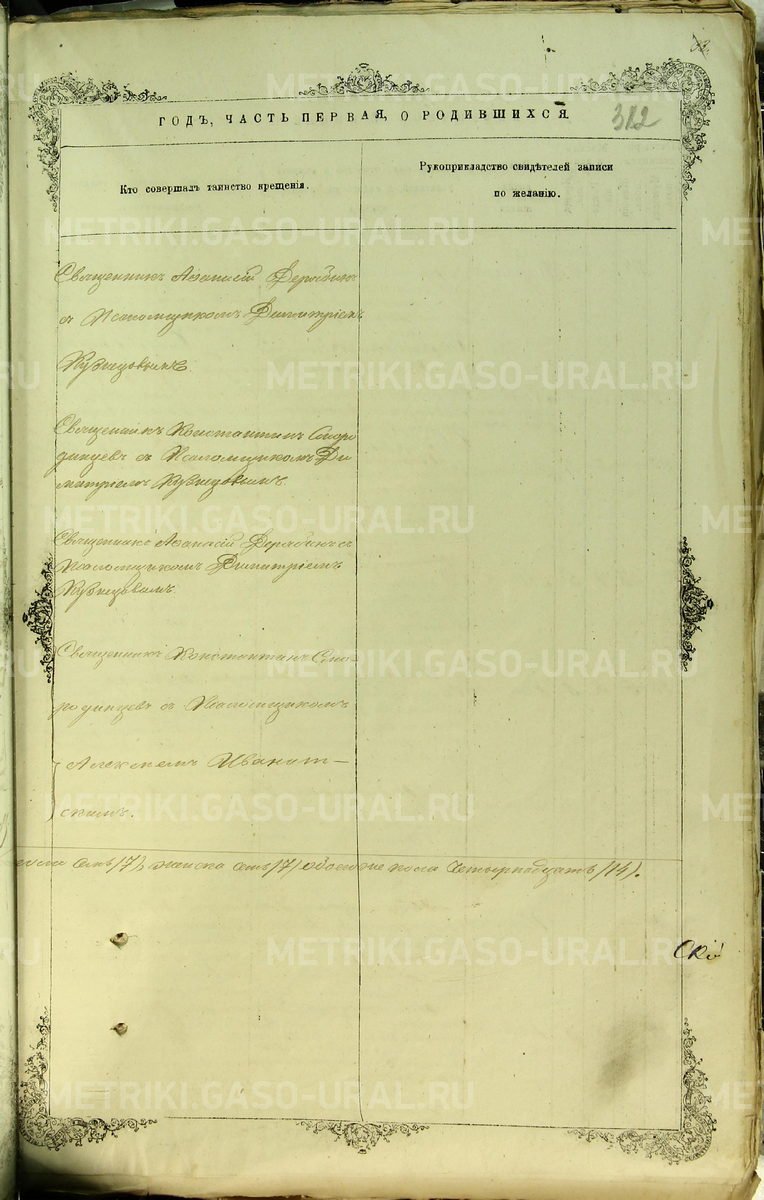 ГОДЪ, ЧАСТЬ ПЕРВАЯ, О РОДИВШИХСЯ
312
Кто совершалъ таинство крещенія.
Рукоприкладство свидѣтелей записи
по желанію.
Священникъ Аѳанасій Дерябинъ
съ Псаломщикомъ Димитріемъ
Кузнецовымъ.
Священникъ Константинъ Сморо
динцевъ съ Псаломщикомъ Ди
митріемъ Кузнецовымъ.
Священникъ Аѳанасій Дерябинъ съ
Псаломщикомъ Димитріемъ
Кузнецовымъ.
Священникъ Константинъ Смо-
родинцевъ съ Псаломщикомъ
Алексѣемъ Иванит-
скимъ.
пола семь (7), женска семь (7) обоего пола четырнадцать (14).
METRIKI.GASO-URAL.RU